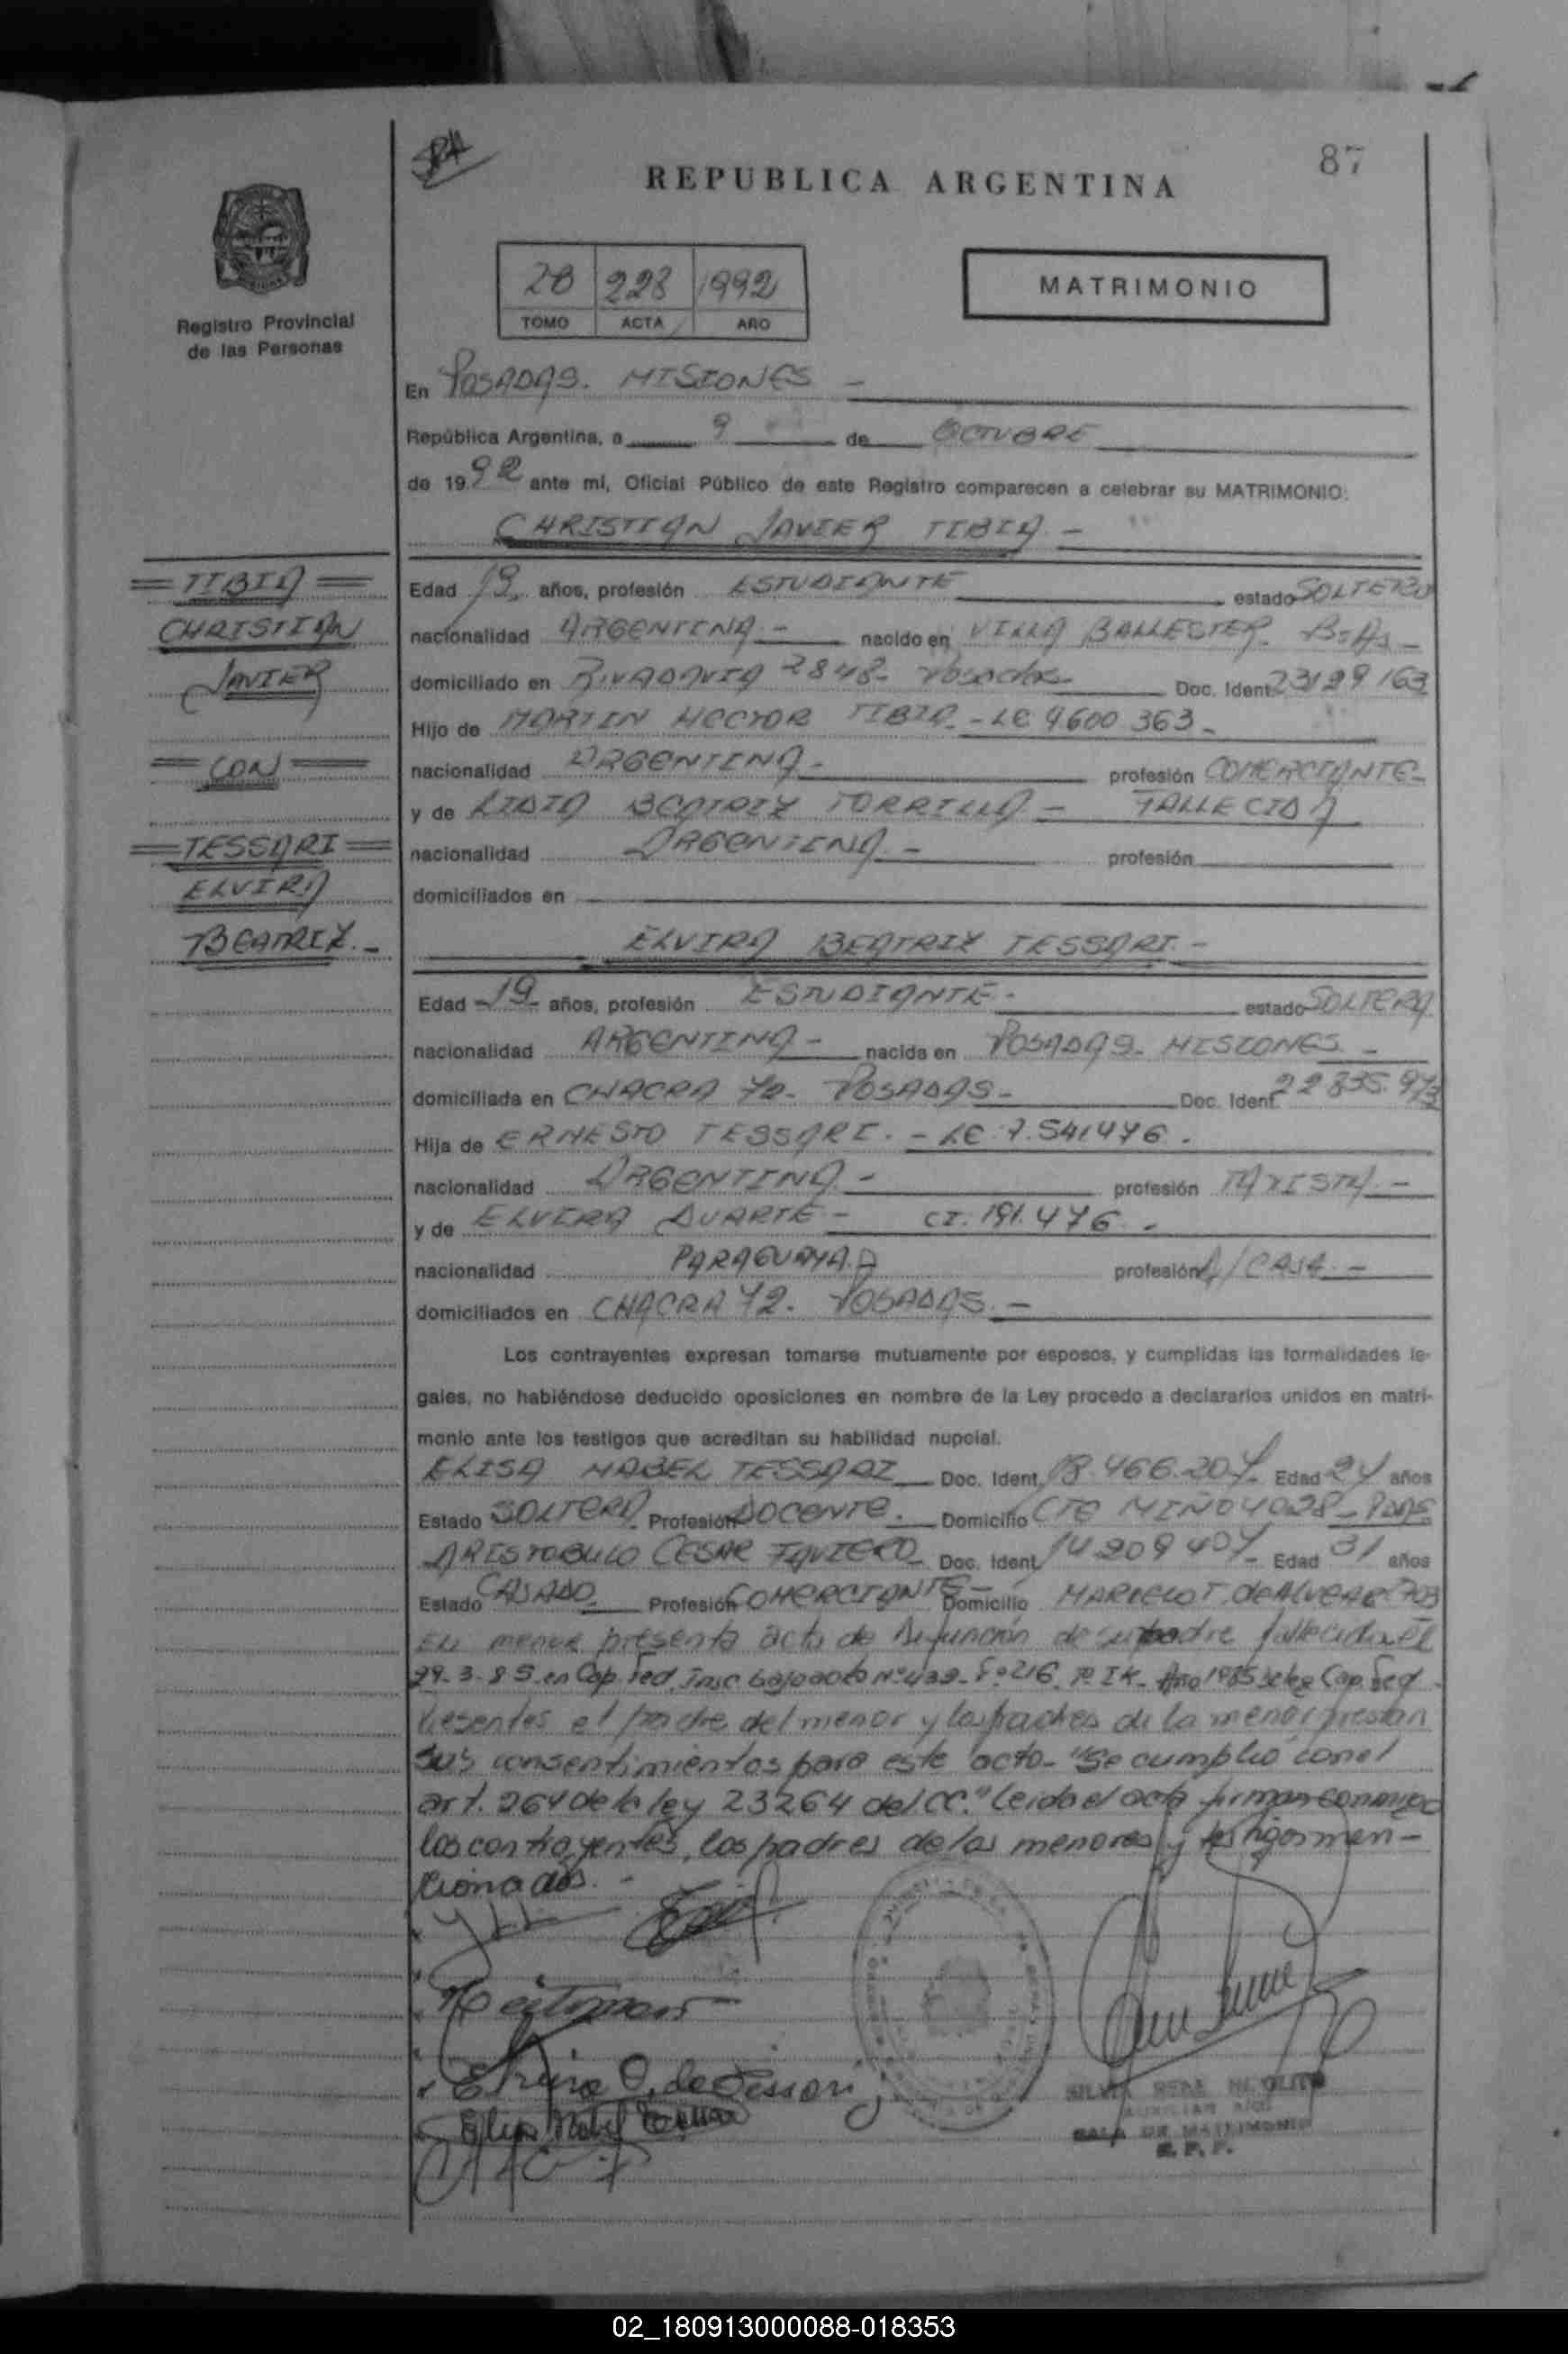 87
REPUBLICA ARGENTINA
Registro Provincial
de las Personas
2B 228 1992
TOMO ACTA AÑO
MATRIMONIO
En POSADAS. MISIONES -
República Argentina, a 9 de OCTUBRE
de 1992 ante mí, Oficial Público de este Registro comparecen a celebrar su MATRIMONIO:
CHRISTIAN JAVIER TIBIA -
TIBIA
CHRISTIAN
JAVIER
CON
TESSARI
ELVIRA
BEATRIZ.-
Edad 19 años, profesión ESTUDIANTE estado SOLTERO
nacionalidad ARGENTINA - nacido en VILLA BALLESTER. Bs As -
domiciliado en RIVADAVIA 2848- Posadas Doc. Ident. 23129163
Hijo de MARTIN HECTOR TIBIA - LE 4600 363 -
nacionalidad ARGENTINA - profesión COMERCIANTE-
y de LIDIA BEATRIZ TORRILLA - FALLECIDA
nacionalidad ARGENTINA - profesión
domiciliados en
ELVIRA BEATRIZ TESSARI -
Edad 19 años, profesión ESTUDIANTE - estado SOLTERA
nacionalidad ARGENTINA - nacida en POSADAS- MISIONES -
domiciliada en CHACRA 72- POSADAS - Doc. Ident. 22 835.973
Hija de ERNESTO TESSARI. - LE. 7.541476.
nacionalidad ARGENTINA - profesión TAXISTA. -
y de ELVIRA DUARTE - CI. 191.476. -
nacionalidad PARAGUAYA profesión A/CASA. -
domiciliados en CHACRA 72. POSADAS. -
Los contrayentes expresan tomarse mutuamente por esposos, y cumplidas las formalidades le-
gales, no habiéndose deducido oposiciones en nombre de la Ley procedo a declararlos unidos en matri-
monio ante los testigos que acreditan su habilidad nupcial.
ELISA MABEL TESSARI Doc. Ident. 18.466.207 Edad 24 años
Estado SOLTERA Profesión DOCENTE. Domicilio CTE MIÑO 4028- PDAS
ARISTOBULO CESAR Doc. Ident. 14 209 407 Edad 31 años
Estado CASADO Profesión COMERCIANTE - Domicilio MARCELO T. de ALVEAR 703
El menor presenta acta de Defunción de su padre fallecida el
29-3-85 en Cap. Fed. Insc bajo acto Nº 439- Fº 216. Tº IK- Año 1985 Cap. Fed.
Presentes el padre del menor y los padres de la menor prestan
sus consentimientos para este acto- "Se cumplió con el
art. 264 de la ley 23264 del CC." Leida el acta firman conmigo
los contrayentes, los padres de los menores y testigos men-
cionados. -
Elvira D. de Tessari
Elisa Mabel Tessari
SALA DE MATRIMONIO